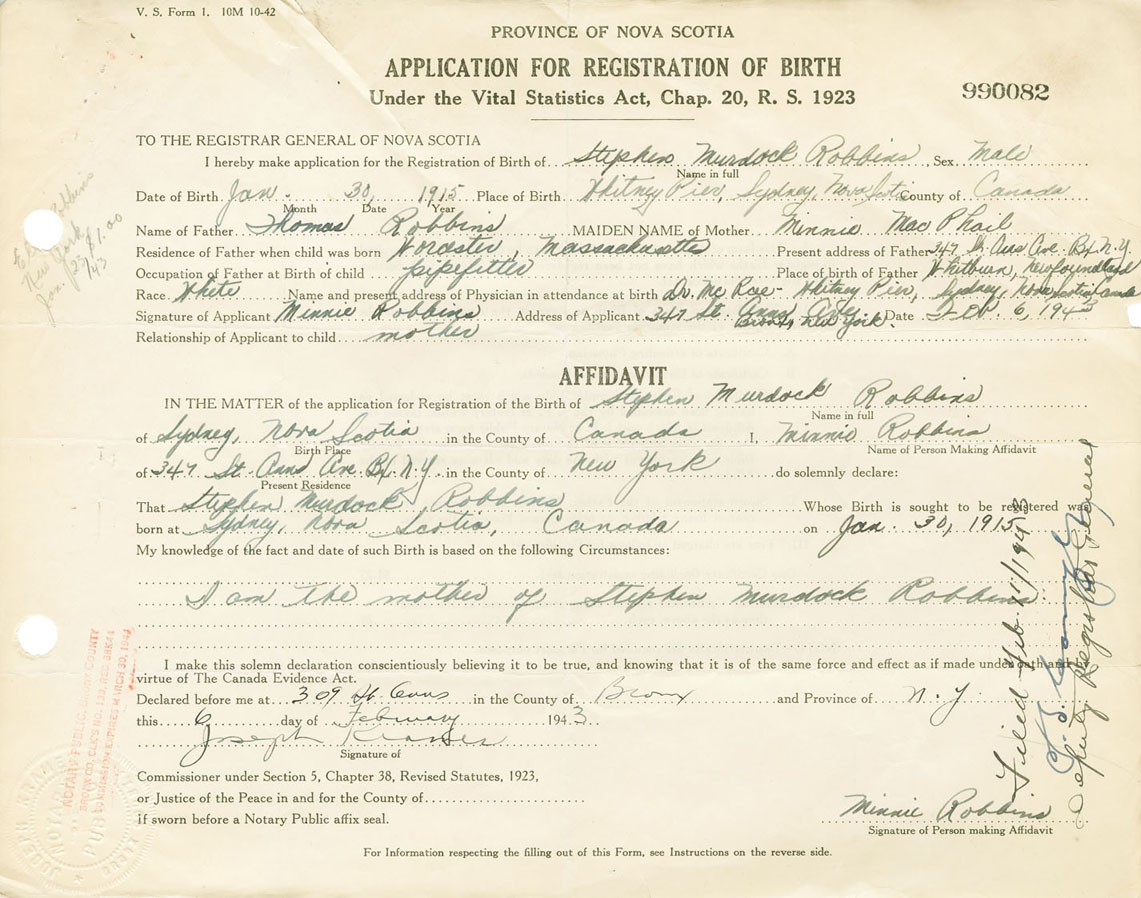 V. S. Form 1. 10M 10-42
PROVINCE OF NOVA SCOTIA
APPLICATION FOR REGISTRATION OF BIRTH
Under the Vital Statistics Act, Chap. 20, R. S. 1923
990082
TO THE REGISTRAR GENERAL OF NOVA SCOTIA
I hereby make application for the Registration of Birth of Stephen Murdock Robbins Sex Male
Name in full
Date of Birth Jan. 30, 1915 Place of Birth Whitney Pier, Sydney, Nova Scotia County of Canada
Month Date Year
Name of Father Thomas Robbins MAIDEN NAME of Mother Minnie MacPhail
Residence of Father when child was born Worcester, Massachusetts Present address of Father 347 St. Anns Ave. Bx. N.Y.
Occupation of Father at Birth of child pipefitter Place of birth of Father Whitburn, Newfoundland
Race White Name and present address of Physician in attendance at birth Dr. McRae - Whitney Pier, Sydney, Nova Scotia Canada
Signature of Applicant Minnie Robbins Address of Applicant 347 St. Anns Ave. Bronx New York. Date Feb. 6, 194
Relationship of Applicant to child mother
AFFIDAVIT
IN THE MATTER of the application for Registration of the Birth of Stephen Murdock Robbins
Name in full
of Sydney, Nova Scotia in the County of Canada I, Minnie Robbins
Birth Place Name of Person Making Affidavit
of 347 St. Anns Ave Bx N.Y. in the County of New York do solemnly declare:
Present Residence
That Stephen Murdock Robbins Whose Birth is sought to be registered was
born at Sydney, Nova Scotia, Canada on Jan. 30, 1915
My knowledge of the fact and date of such Birth is based on the following Circumstances:
I am the mother of Stephen Murdock Robbins.
I make this solemn declaration conscientiously believing it to be true, and knowing that it is of the same force and effect as if made under oath and by
virtue of The Canada Evidence Act.
Declared before me at 309 St. Anns in the County of Bronx and Province of N.Y.
this 6 day of February 1943
Joseph Kramer
Signature of
Commissioner under Section 5, Chapter 38, Revised Statutes, 1923,
or Justice of the Peace in and for the County of
If sworn before a Notary Public affix seal.
Minnie Robbins
Signature of Person making Affidavit
For Information respecting the filling out of this Form, see Instructions on the reverse side.
Filed Feb. 11/1943
Deputy Registrar General
Robbins
New York
Jan. 23/43 $1.00
NOTARY PUBLIC, BRONX COUNTY
COMMISSION EXPIRES MARCH 30, 1944